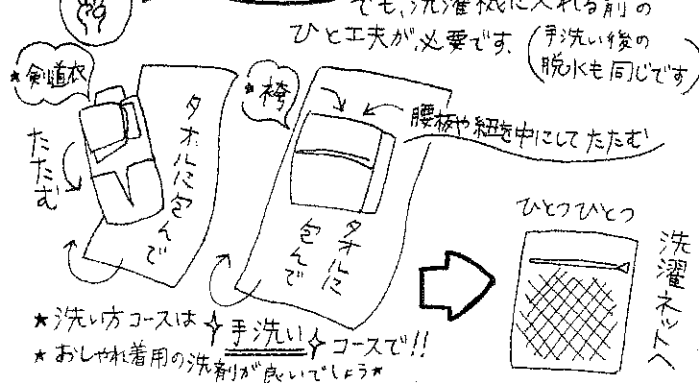 でも、洗濯機に入れる前の
ひと工夫が、必要です。
(手洗い後の
脱水も同じです)
★剣道衣
たたむ
タオルに包んで
★袴
腰板や紐を中にしてたたむ
タオルに
包んで
ひとつひとつ
洗濯ネットへ
★洗い方コースは手洗いコースで!!
★おしゃれ着用の洗剤が良いでしょう★